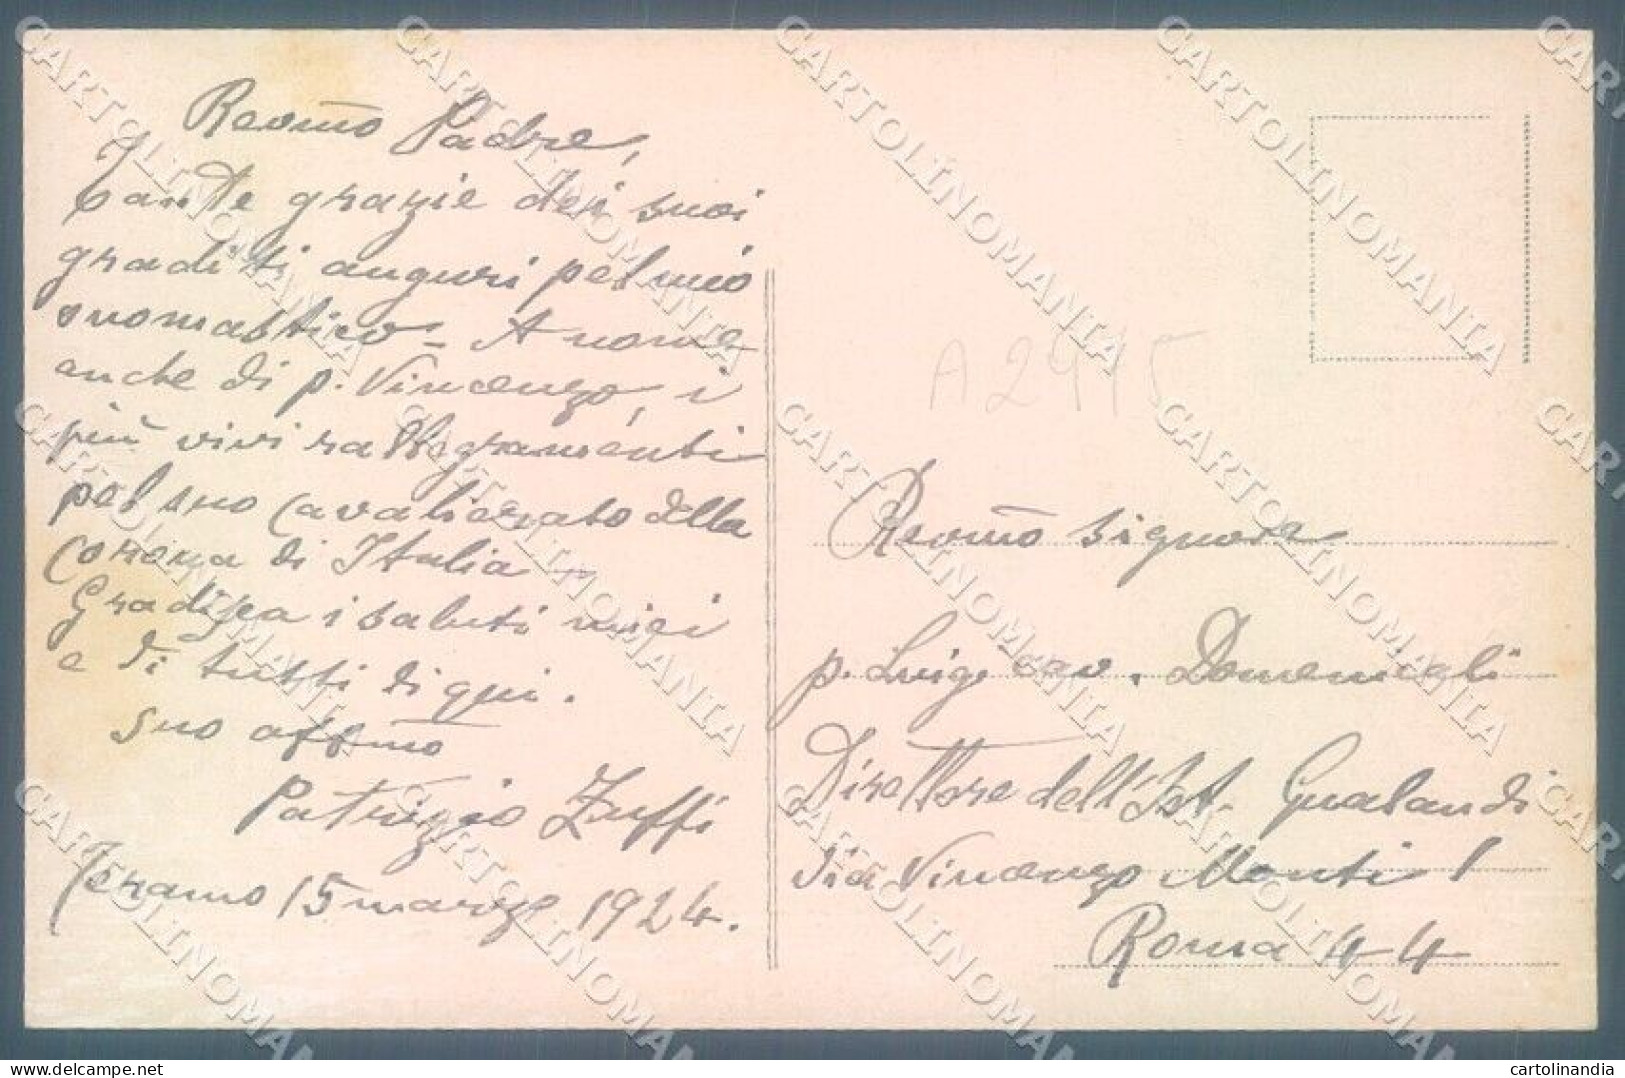 Revmo Padre,
Tante grazie dei suoi
graditi auguri pel mio
onomastico - A nome
anche di p. Vincenzo, i
più vivi rallegramenti
pel suo Cavalierato della
Corona di Italia -
Gradisca i saluti miei
e di tutti di qui.
suo affmo
Patrizio Zuffi
Teramo 15 marzo 1924.
A2415
Revmo Signore
p. Luigi cav. Domenicali
Direttore dell'Ist. Gualandi
Via Vincenzo Monti 1
Roma 44
CARTOLINOMANIA
cartolinandia